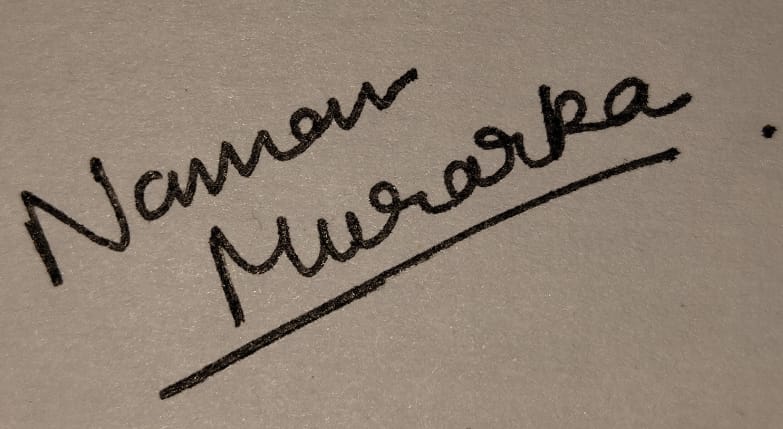 Naman
Murarka.